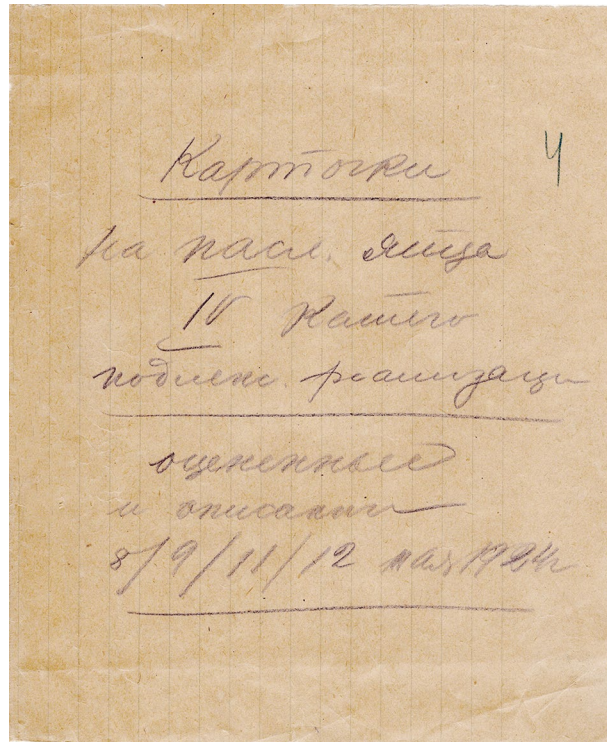 Карточки
4
на пасх. яйца
IV Категор
подлеж. реализаци
оцененные
и описании
8/9/11/12 мая 1924 г